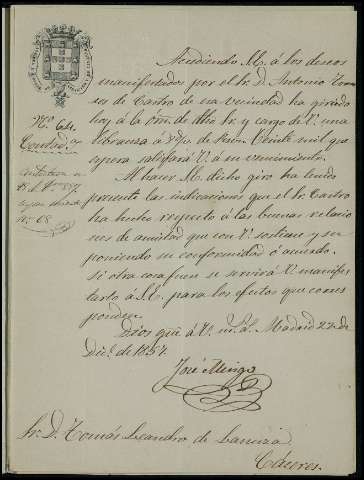 Nº 64.
Contad.ª
Accediendo M. á los deseos
manifestados por el Sr. D. Antonio
de Castro de esa vecindad ha girado
hoy á la órn. de dho Sr. y cargo de V. una
libranza á d/v. de Veinte mil que
espera satisfará V. á su vencimiento.
Al hacer M. dicho giro ha tenido
presente las indicaciones que el Sr. Castro
ha hecho respecto á las buenas relacio
nes de amistad que con V. sostiene y su
poniendo su conformidad ó acuerdo.
Si otra cosa fuese se servirá V. manifes
tarlo á para los efectos que corres
ponden.
Dios gue á V. m. a. Madrid 22 de
Dic.e de 1857.
José Mingo
Sr. D. Tomás Leandro de
Cáceres.